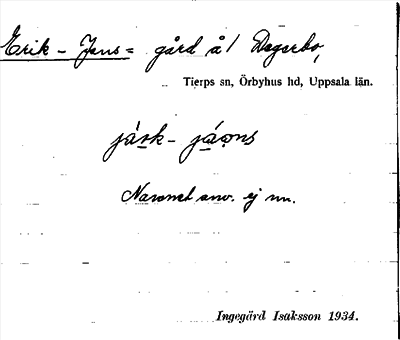 Erik-Jans= gård å/ Dagarbo,
Tierps sn, Örbyhus hd, Uppsala län.
jårk- jáons
Namnet anv. ej nu.
Ingegärd Isaksson 1934.